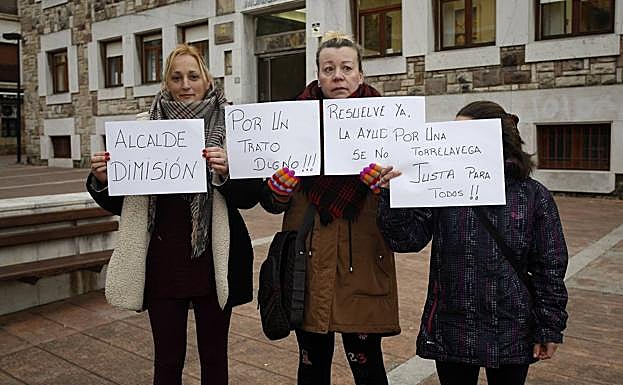 ALCALDE
DIMISIÓN
POR UN
TRATO
DIGNO!!!
RESUELVE YA,
LA AYUD
SE NO
POR UNA
TORRELAVEGA
JUSTA PARA
TODOS!!